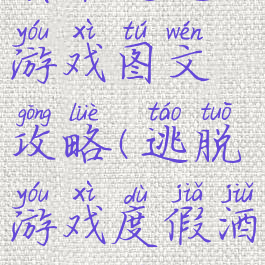 yóu xì tú wén
游戏图文
gōng lüè táo tuō
攻略(逃脱
yóu xì dù jiǎ jiǔ
游戏度假酒